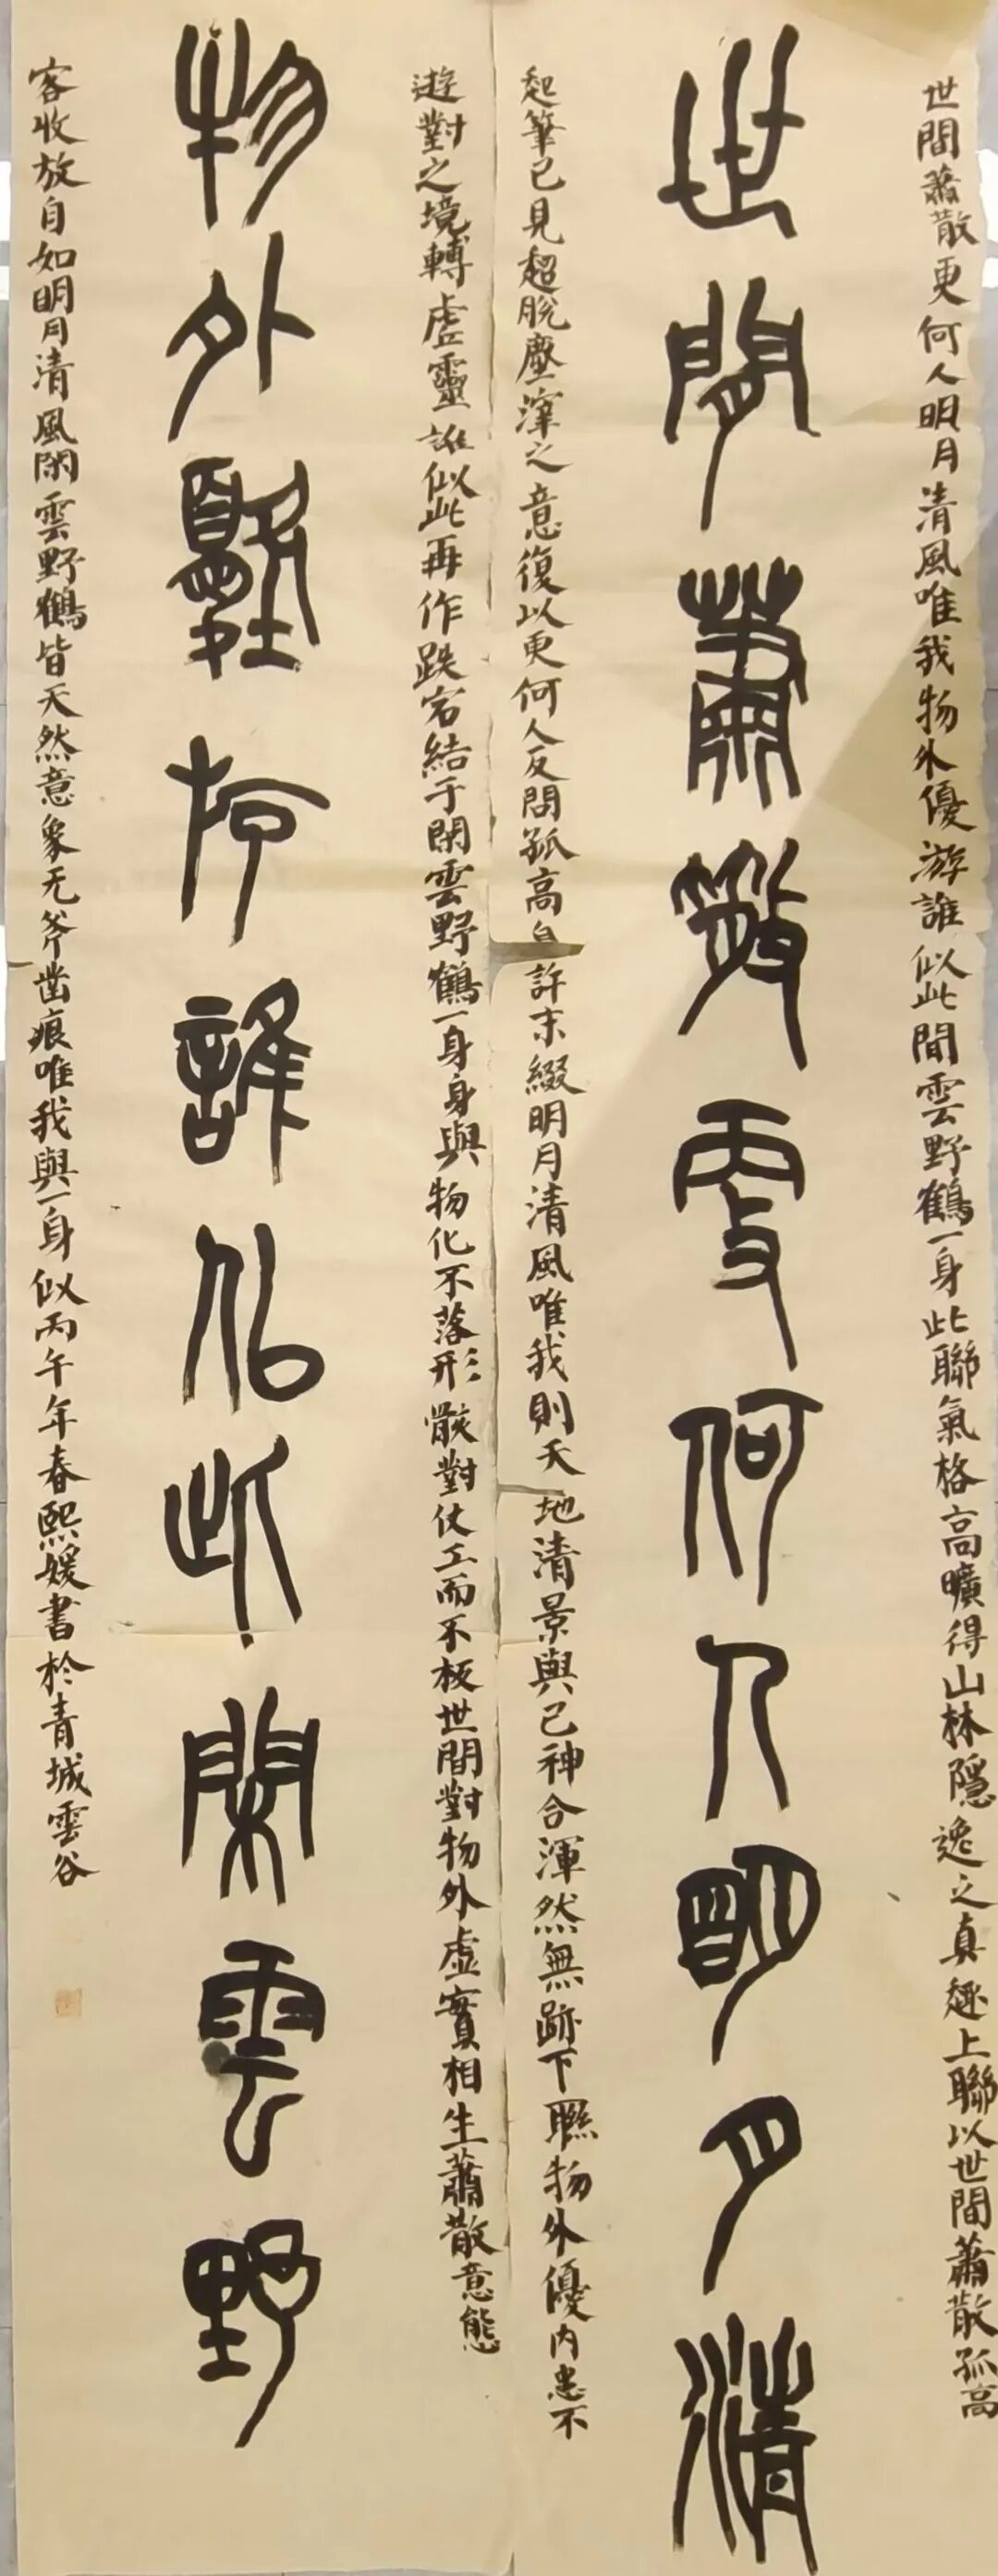 世間蕭散更何人明月清風唯我物外優游誰似此閒雲野鶴一身此聯氣格高曠得山林隱逸之真趣上聯以世間蕭散孤高
世間蕭散更何人明月清
起筆已見超脫塵滓之意復以更何人反問孤高自許末綴明月清風唯我則天地清景與己神合渾然無跡下聯物外優内患不
遊對之境轉虛靈誰似此再作跌宕結于閑雲野鶴一身身與物化不落形骸對仗工而不板世間對物外虛實相生蕭散意態
物外優斿誰似此閑雲野
客收放自如明月清風閑雲野鶴皆天然意象无斧凿痕唯我與一身似丙午年春熙媛書於青城雲谷